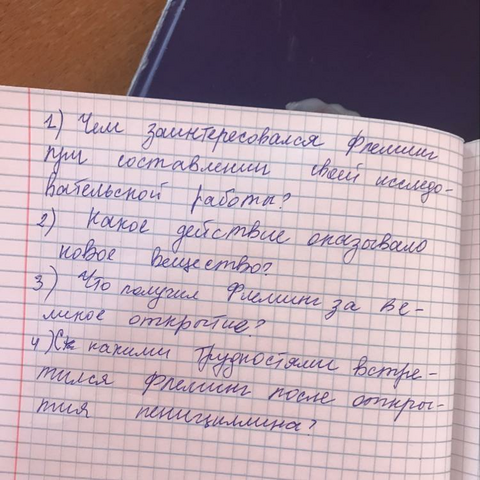 1) Чем заинтересовался Флеминг
при составлении своей исследо-
вательской работы?
2) Какое действие оказывало
новое вещество?
3) Что получил Флеминг за ве-
ликое открытие?
4) С какими трудностями встре-
тился Флеминг после откры-
тия пенициллина?